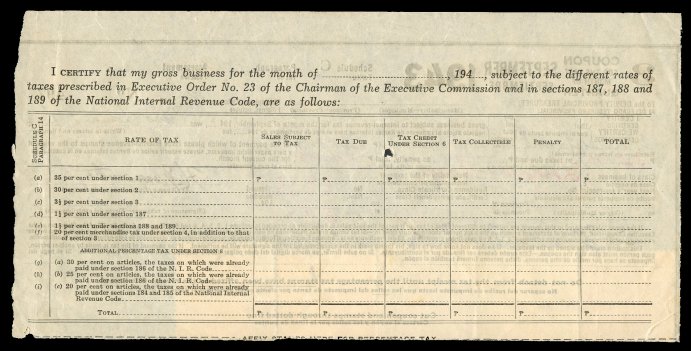 I CERTIFY that my gross business for the month of ........, 194...., subject to the different rates of
taxes prescribed in Executive Order No. 23 of the Chairman of the Executive Commission and in sections 187, 188 and
189 of the National Internal Revenue Code, are as follows:
SCHEDULE C
PARAGRAPH 14
RATE OF TAX
SALES SUBJECT TO TAX
TAX DUE
TAX CREDIT UNDER SECTION 6
TAX COLLECTIBLE
PENALTY
TOTAL
(a) 35 per cent under section 1 ₱ ₱ ₱ ₱ ₱ ₱
(b) 30 per cent under section 2
(c) 3½ per cent under section 3
(d) 1½ per cent under section 187
(e) 1½ per cent under sections 188 and 189
(f) 20 per cent merchandise tax under section 4, in addition to that
of section 3
ADDITIONAL PERCENTAGE TAX UNDER SECTION 8
(g) (a) 30 per cent on articles, the taxes on which were already
paid under section 186 of the N. I. R. Code
(h) (b) 25 per cent on articles, the taxes on which were already
paid under section 186 of the N. I. R. Code
(i) (c) 20 per cent on articles, the taxes on which were already
paid under sections 184 and 185 of the National Internal
Revenue Code
TOTAL ₱ ₱ ₱ ₱ ₱ ₱